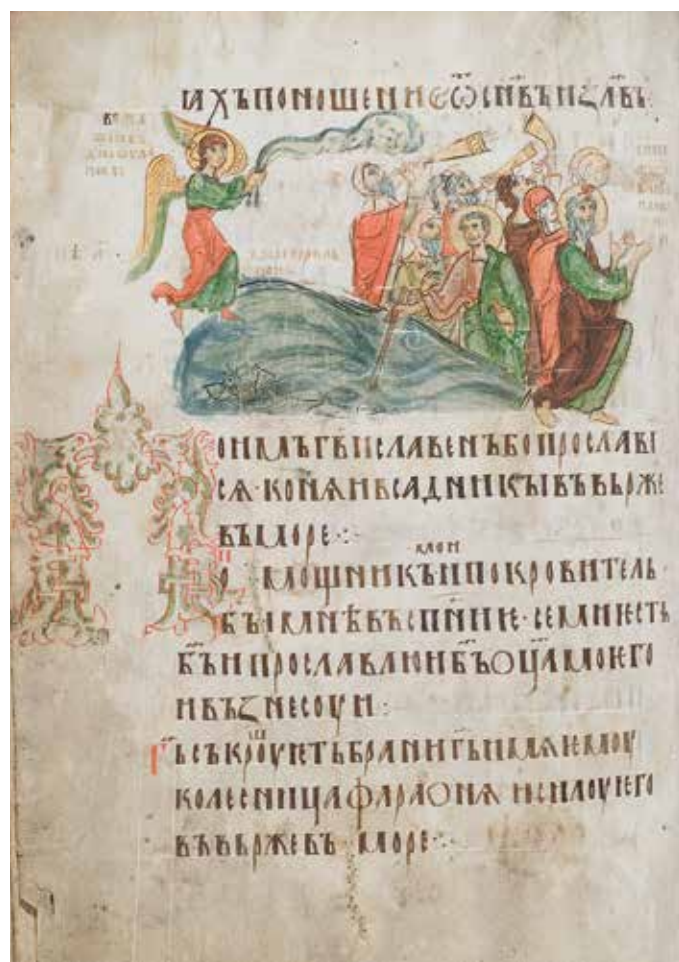 ꙗхъпоношениѥѿсн҃въизл҃въ
Поимъгв҃иславенъбопрославі
сѧ·конѧивсадникывъвьрже
въморе·:·
мои
Помощникъ·ипокровитель·
бы́мнѣвъсп҃ниѥ·семиѥсть
бъ҃ипрославлюибъ҃ѻц҃амоѥго
ивъꙁнесоуи:
Гь҃съкроушѥтьбранигь҃имѧѥмоу
колесницафараонѧисилоуѥго
въвьржевъморе·:·